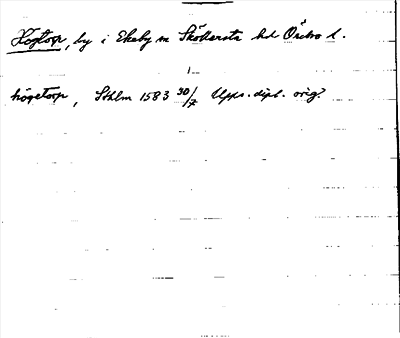 Högtorp, by i Ekeby sn Sköllersta hd Örebro l.
högetorp, Sthlm 1583 30/7 Upps. dipl. orig?